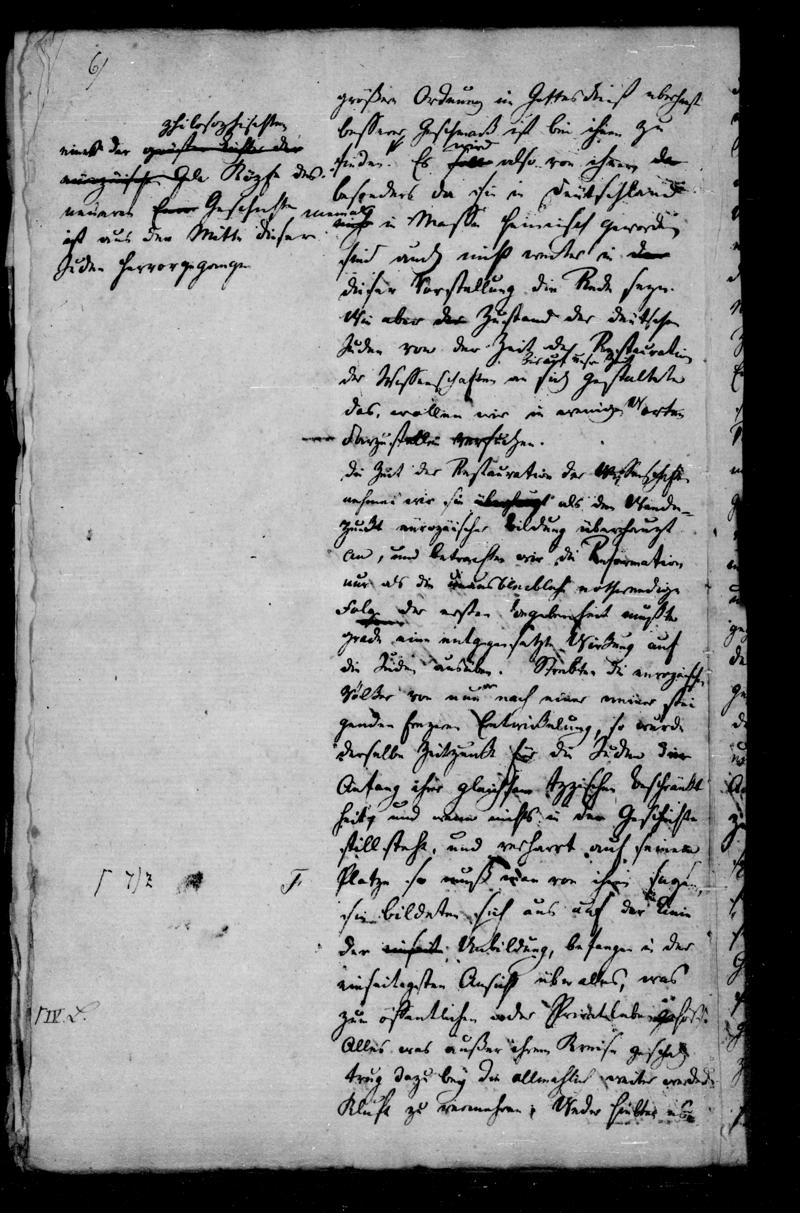 6)
philosophischsten
eines der geistreichsten der
europäischen Köpfe des
neueren Geschichte
ist aus der Mitte dieser
Juden hervorgegangen
größere Ordnung im Gottesdienst überhaupt
besserer Geschmack ist bei ihnen zu
finden. Es wird also von ihnen da
besonders da sie in Deutschland
niemals in Masse heimisch geworden
sind auch nicht weiter in
dieser Vorstellung die Rede seyn.
Wie aber der Zustand der deutschen
Juden von der Zeit der Restauration
der Wissenschaften an sich gestaltete
bis auf unsre Zeit
das, wollen wir in wenigen Worten
darzustellen versuchen.
Die Zeit der Restauration der Wissenschaften
nehmen wir sie überhaupt als den Wende-
punkt europäischer Bildung überhaupt
an, und betrachten wir die Reformation
nur als die unausbleiblich nothwendige
Folge der ersten Begebenheit mußte
grade eine entgegengesetzte Wirkung auf
die Juden ausüben. Strebten die europäischen
Völker von nun an nach einer immer stei
genden freyeren Entwickelung, so wurde
derselbe Zeitpunkt für die Juden der
Anfang ihrer gleichsam typischen Beschränkt
heit, und wenn nichts in der Geschichte
still steht, und verharrt auf seinem
Platze so muß man von ihnen sagen,
sie bildeten sich aus auf der Linie
der einseit Unbildung, befangen in der
einseitigsten Ansicht über alles, was
zum öffentlichen oder Privatleben gehört.
Alles was außer ihrem Kreise geschah
trug dazu bey die allmählich weiter werdende
Kluft zu vermehren; Weder hielten
Γ 7/2
F
Γ IV. L.